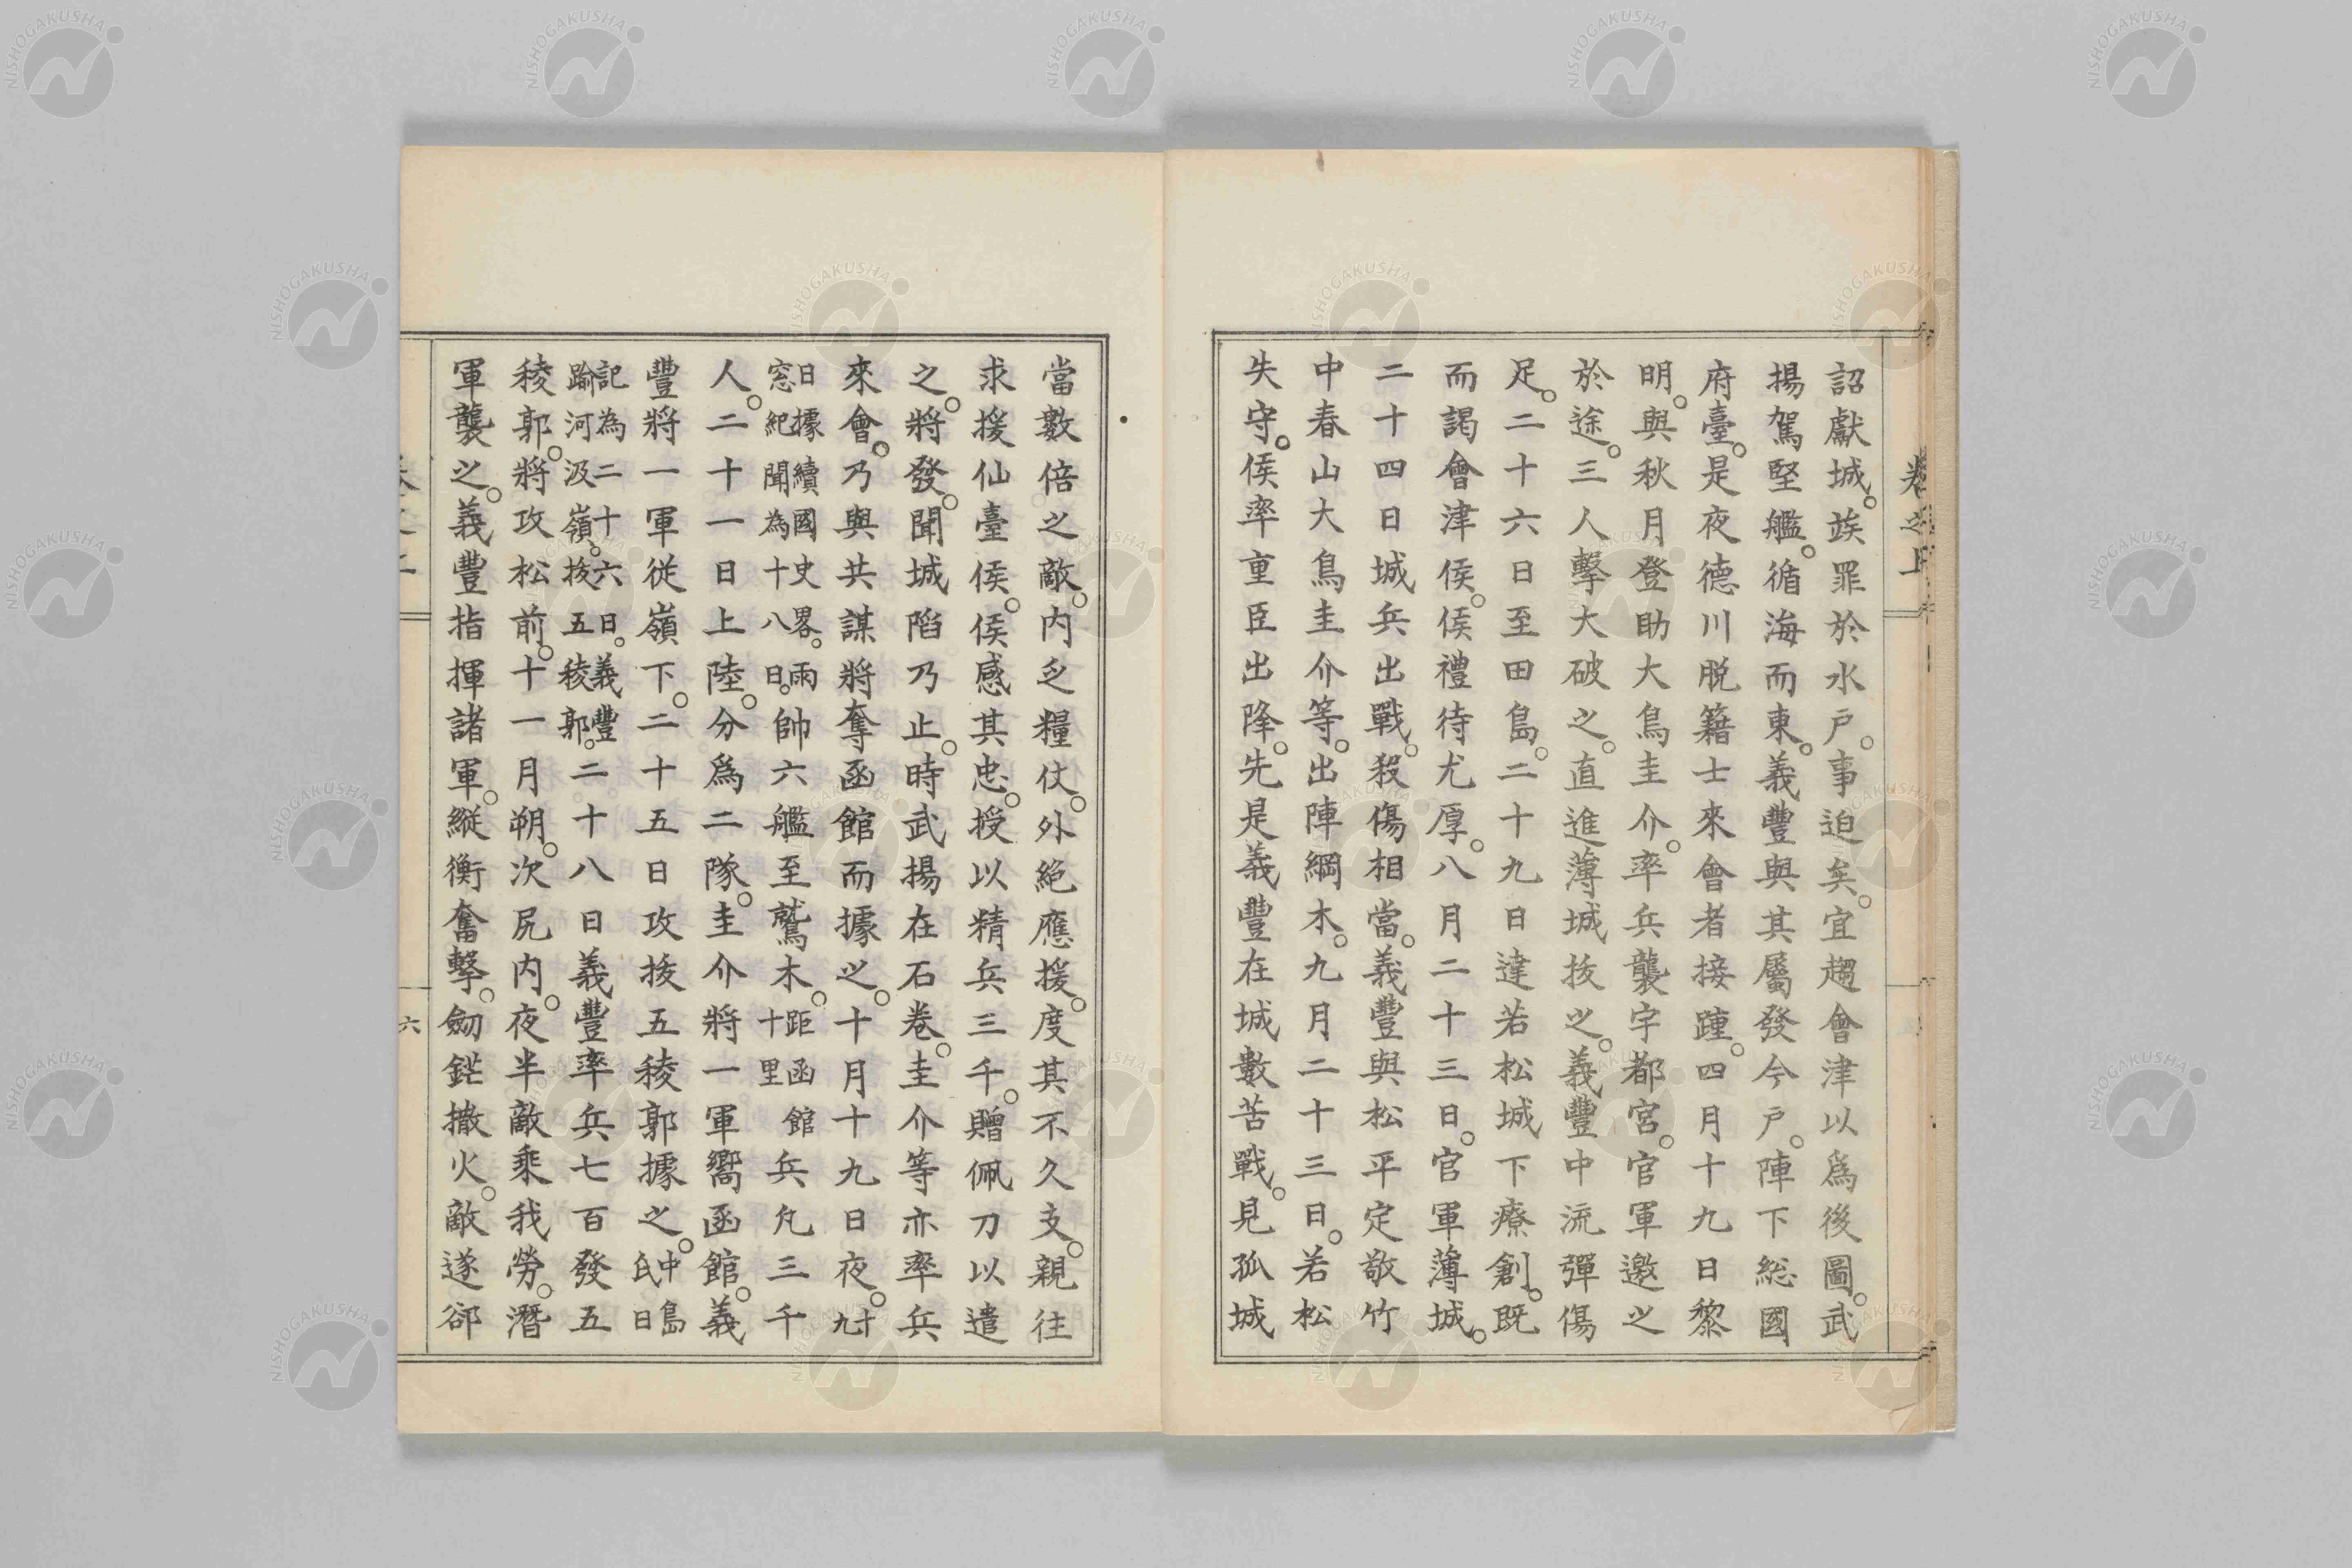 卷之上
詔獻城。竢罪於水戶。事迫矣。宜趨會津以爲後圖。武
揚駕堅艦。循海而東。義豐與其屬發今戶。陣下総國
府臺。是夜德川脫籍士來會者接踵。四月十九日黎
明。與秋月登助大鳥圭介。率兵襲宇都宮。官軍邀之
於途。三人擊大破之。直進薄城拔之。義豐中流彈傷
足。二十六日至田島。二十九日達若松城下療創。既
而謁會津侯。侯禮待尤厚。八月二十三日。官軍薄城。
二十四日城兵出戰。殺傷相當。義豐與松平定敬竹
中春山大鳥圭介等。出陣綱木。九月二十三日。若松
失守。侯率重臣出降。先是義豐在城數苦戰。見孤城
當數倍之敵。內乏糧仗。外絕應援。度其不久支。親往
求援仙臺侯。侯感其忠。授以精兵三千。贈佩刀以遣
之。將發。聞城陷乃止。時武揚在石卷。圭介等亦率兵
來會。乃與共謀將奪函館而據之。十月十九日夜。十九
日據續國史畧。雨窓紀聞為十八日。帥六艦至鷲木。距函館十里兵凡三千
人。二十一日上陸。分爲二隊。圭介將一軍嚮函館。義
豐將一軍從嶺下。二十五日攻拔五稜郭據之。中島氏日
記為二十六日。義豐踰河汲嶺。拔五稜郭。二十八日義豐率兵七百發五
稜郭。將攻松前。十一月朔。次尻內。夜半敵乘我勞。潛
軍襲之。義豐指揮諸軍。縱衡奮擊。劒鋩撒火。敵遂卻
六